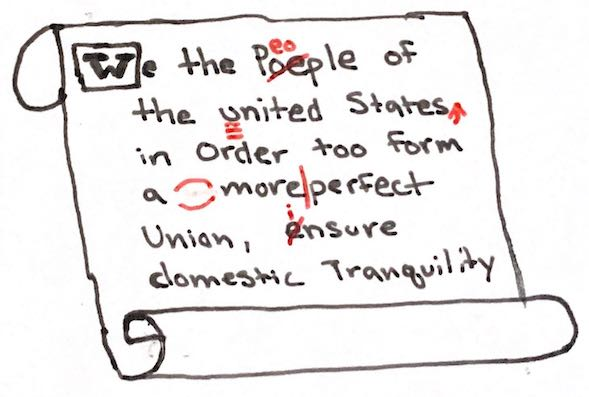 eo
We the Poeple of
the united States,
in Order too form
a more perfect
i
Union, ensure
domestic Tranquility